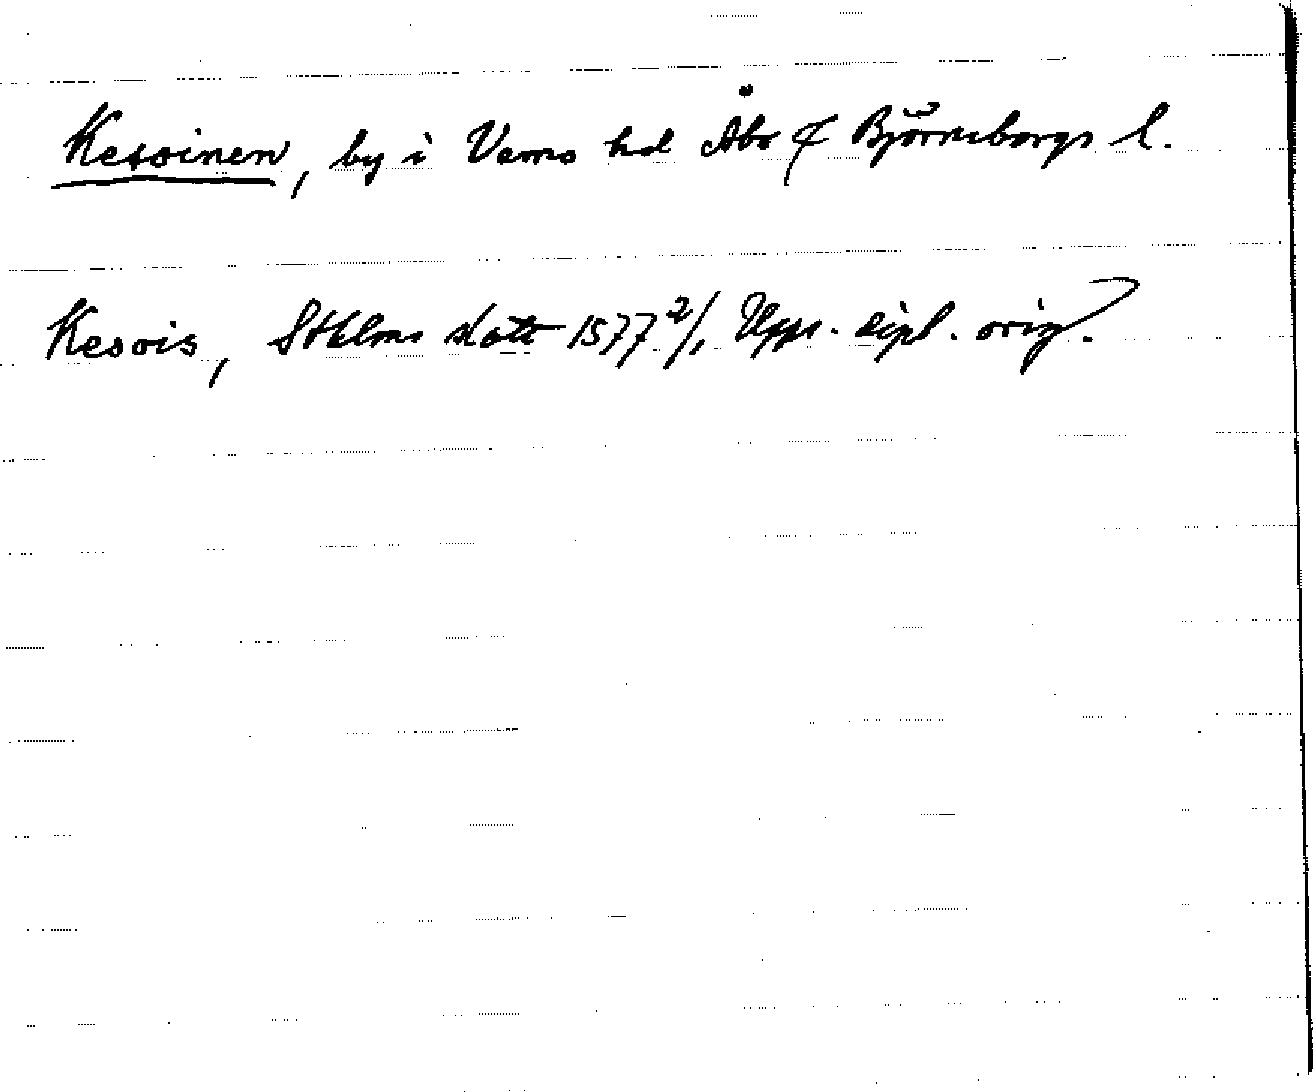 Kesoinen, by i Vemo hd Åbo & Björneborgs l.
Kesois, Sthlms slott 1577 2/1, Upps. dipl. orig.